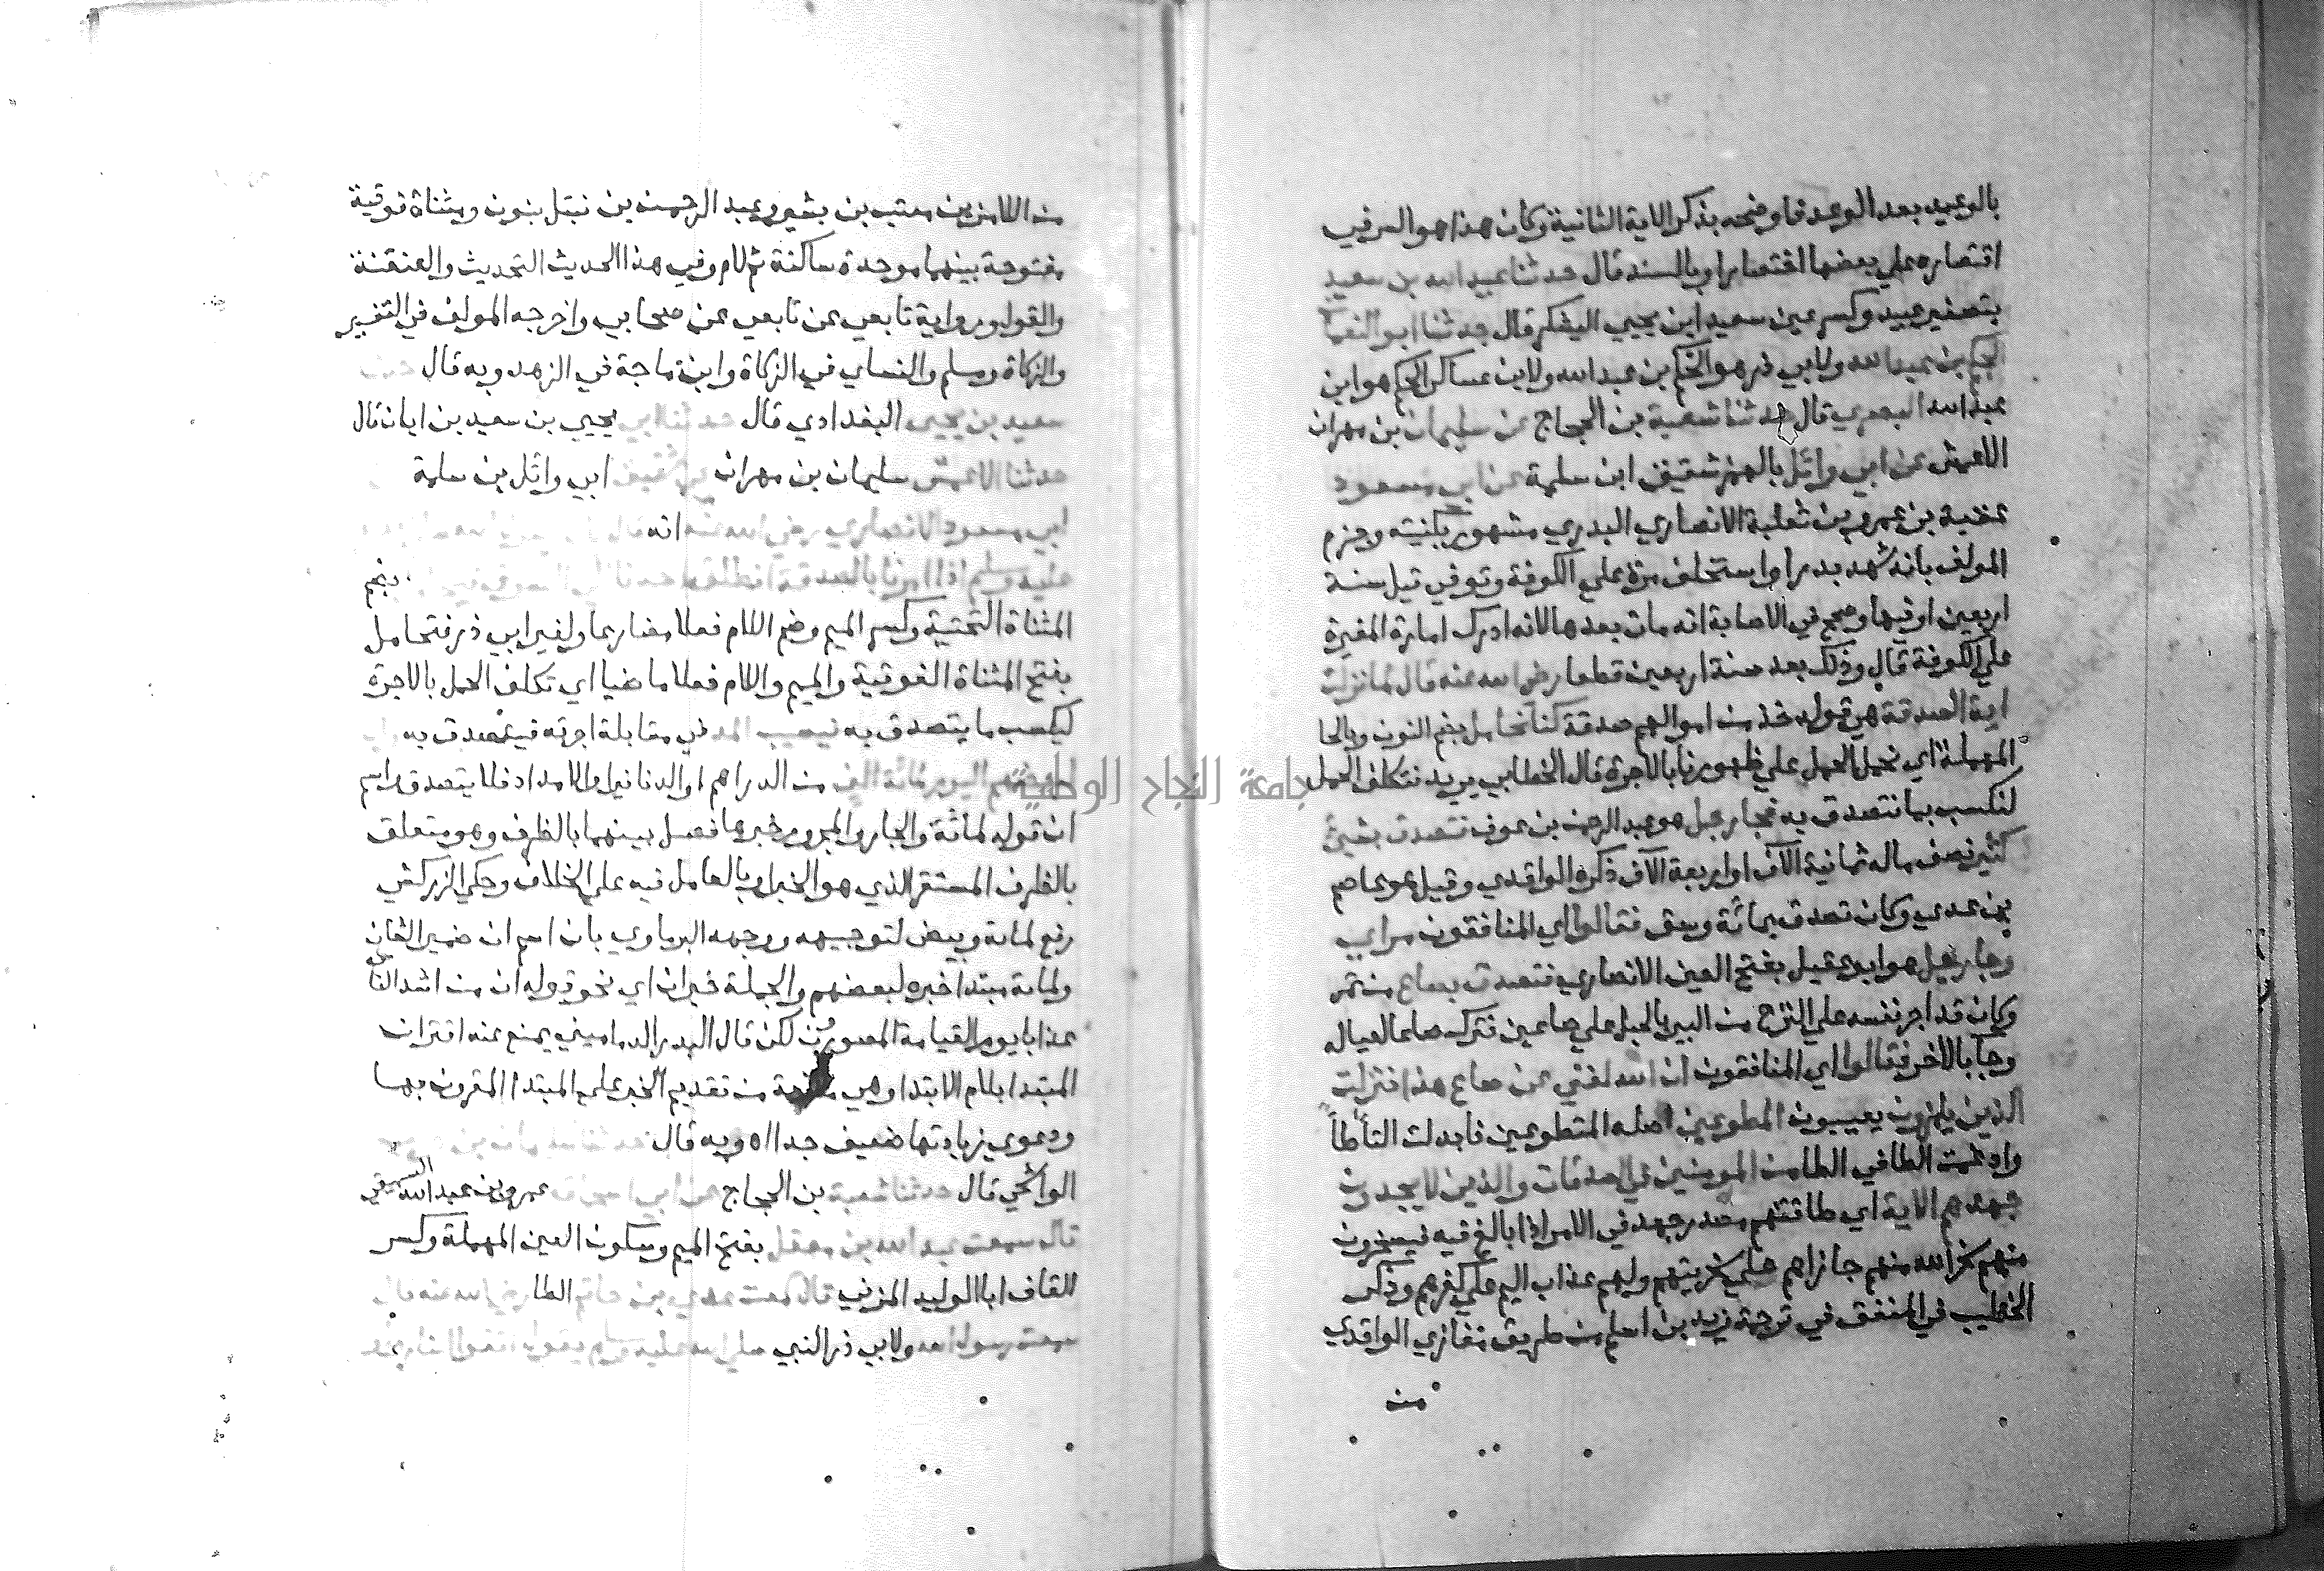 بالوعيد بعد الوعد فاوضحه بذكر الاية الثانية وكان هذا هو السر في
اقتصاره علي بعضها اختصارا وبالسند قال حدثنا عبيد الله بن سعيد
بتصغير عبيد وكسر عين سعيد ابن يحيي اليشكر قال حدثنا ابو النعمان
الحكم بن عبد الله ولابي ذر هو الحكم بن عبد الله ولابن عساكر الحكم هو ابن
عبد الله البصري قال حدثنا شعبة بن الحجاج عن سليمان بن مهران
الاعمش عن ابي وائل بالهمز شقيق ابن سلمة عن ابي مسعود
عقبة بن عمرو بن ثعلبة الانصاري البدري مشهور بكنيته وجزم
المولف بانه شهد بدرا واستخلف مرة علي الكوفة وتوفي قبل سنة
اربعين او فيها وصحح في الاصابة انه مات بعدها لانه ادرك امارة المغيرة
علي الكوفة قال وذلك بعد سنة اربعين قطعا رضي الله عنه قال لما نزلت
اية الصدقة هي قوله خذ من اموالهم صدقة كنا نحامل بضم النون وبالحا
المهملة اي نحمل الحمل علي ظهورنا بالاجرة قال الخطابي يريد نتكلف الحمل
لنكسب بما نتصدق به فجا رجل هو عبد الرحمن بن عوف فتصدق بشئ
كثير نصف ماله ثمانية الآف او اربعة الآف ذكره الواقدي وقيل هو عاصم
بن عدي وكان تصدق بمائة وسق فقالوا اي المنافقون مراي
وجا رجل هو ابو عقيل بفتح العين الانصاري فتصدق بصاع من تمر
وكان قد اجر نفسه علي النزح من البير بالحبل علي صاعين فترك صاعا لعياله
وجا بالاخر فقالوا اي المنافقون ان الله لغني عن صاع هذا فنزلت
الذين يلمزون يعيبون المطوعين اصله المتطوعين فابدلت التا طا
وادغمت الطا في الطا من المومنين في الصدقات والذين لا يجدون
جهدهم الاية اي طاقتهم مصدر جهد في الامر اذا بالغ فيه فيسخرون
منهم سخر الله منهم جازاهم علي سخريتهم ولهم عذاب اليم علي كفرهم وذكر
الخطيب في المتفق في ترجمة زيد بن اسلم من طريق مغازي الواقدي
من
من اللامزين معتب بن بشير وعبد الرحمن بن نبتل بنون ومثناة فوقية
مفتوحة بينهما موحدة ساكنة ثم لام وفي هذا الحديث التحديث والعنعنة
والقول ورواية تابعي عن تابعي عن صحابي واخرجه المولف في التفسير
والزكاة ومسلم والنساي في الزكاة وابن ماجة في الزهد وبه قال
سعيد بن يحيي البغدادي قال حدثنا ابي يحيي بن سعيد بن ابان قال
حدثنا الاعمش سليمان بن مهران عن شقيق ابي وائل بن سلمة
ابي مسعود الانصاري رضي الله عنه انه قال
عليه وسلم اذا امرنا بالصدقة انطلق احدنا بضم
المثناة التحتية وكسر الميم وضم اللام فعلا مضارعا ولغير ابي ذر فتحامل
بفتح المثناة الفوقية والميم واللام فعلا ماضيا اي تكلف الحمل بالاجرة
ليكسب ما يتصدق به فيصيب المد في مقابلة اجرته فيتصدق به
لبعضهم اليوم لمائة الف من الدراهم او الدنانير او الامداد فلا يتصدق واسم
ان قوله لمائة والجار والمجرور خبرها فصل بينهما بالظرف وهو متعلق
بالظرف المستقر الذي هو الخبر او بالعامل فيه علي الخلاف وحكي الزركشي
رفع لماىة وبيض لتوجيهه ووجهه البرماوي بان اسم ان ضمير الشان
ولماىة مبتدا خبره لبعضهم والجملة خبر ان اي نحو قوله ان من اشد الناس
عذابا يوم القيامة المصورون لكن قال البدر الدماميني يمنع عنه اقتران
المبتدا بلام الابتدا وهي مانعة من تقديم الخبر علي المبتدا المقرون بها
ودعوي زيادتها ضعيف جدا اه وبه قال
الواشحي قال حدثنا شعبة بن الحجاج عن ابي اسحاق عمرو بن عبد الله السبيعي
قال سمعت عبد الله بن معقل بفتح الميم وسكون العين المهملة وكسر
القاف ابا الوليد المزني قال سمعت عدي بن حاتم الطا رضي الله عنه قال
سمعت رسول الله ولابي ذر النبي صلي الله عليه وسلم يقول اتقوا النار